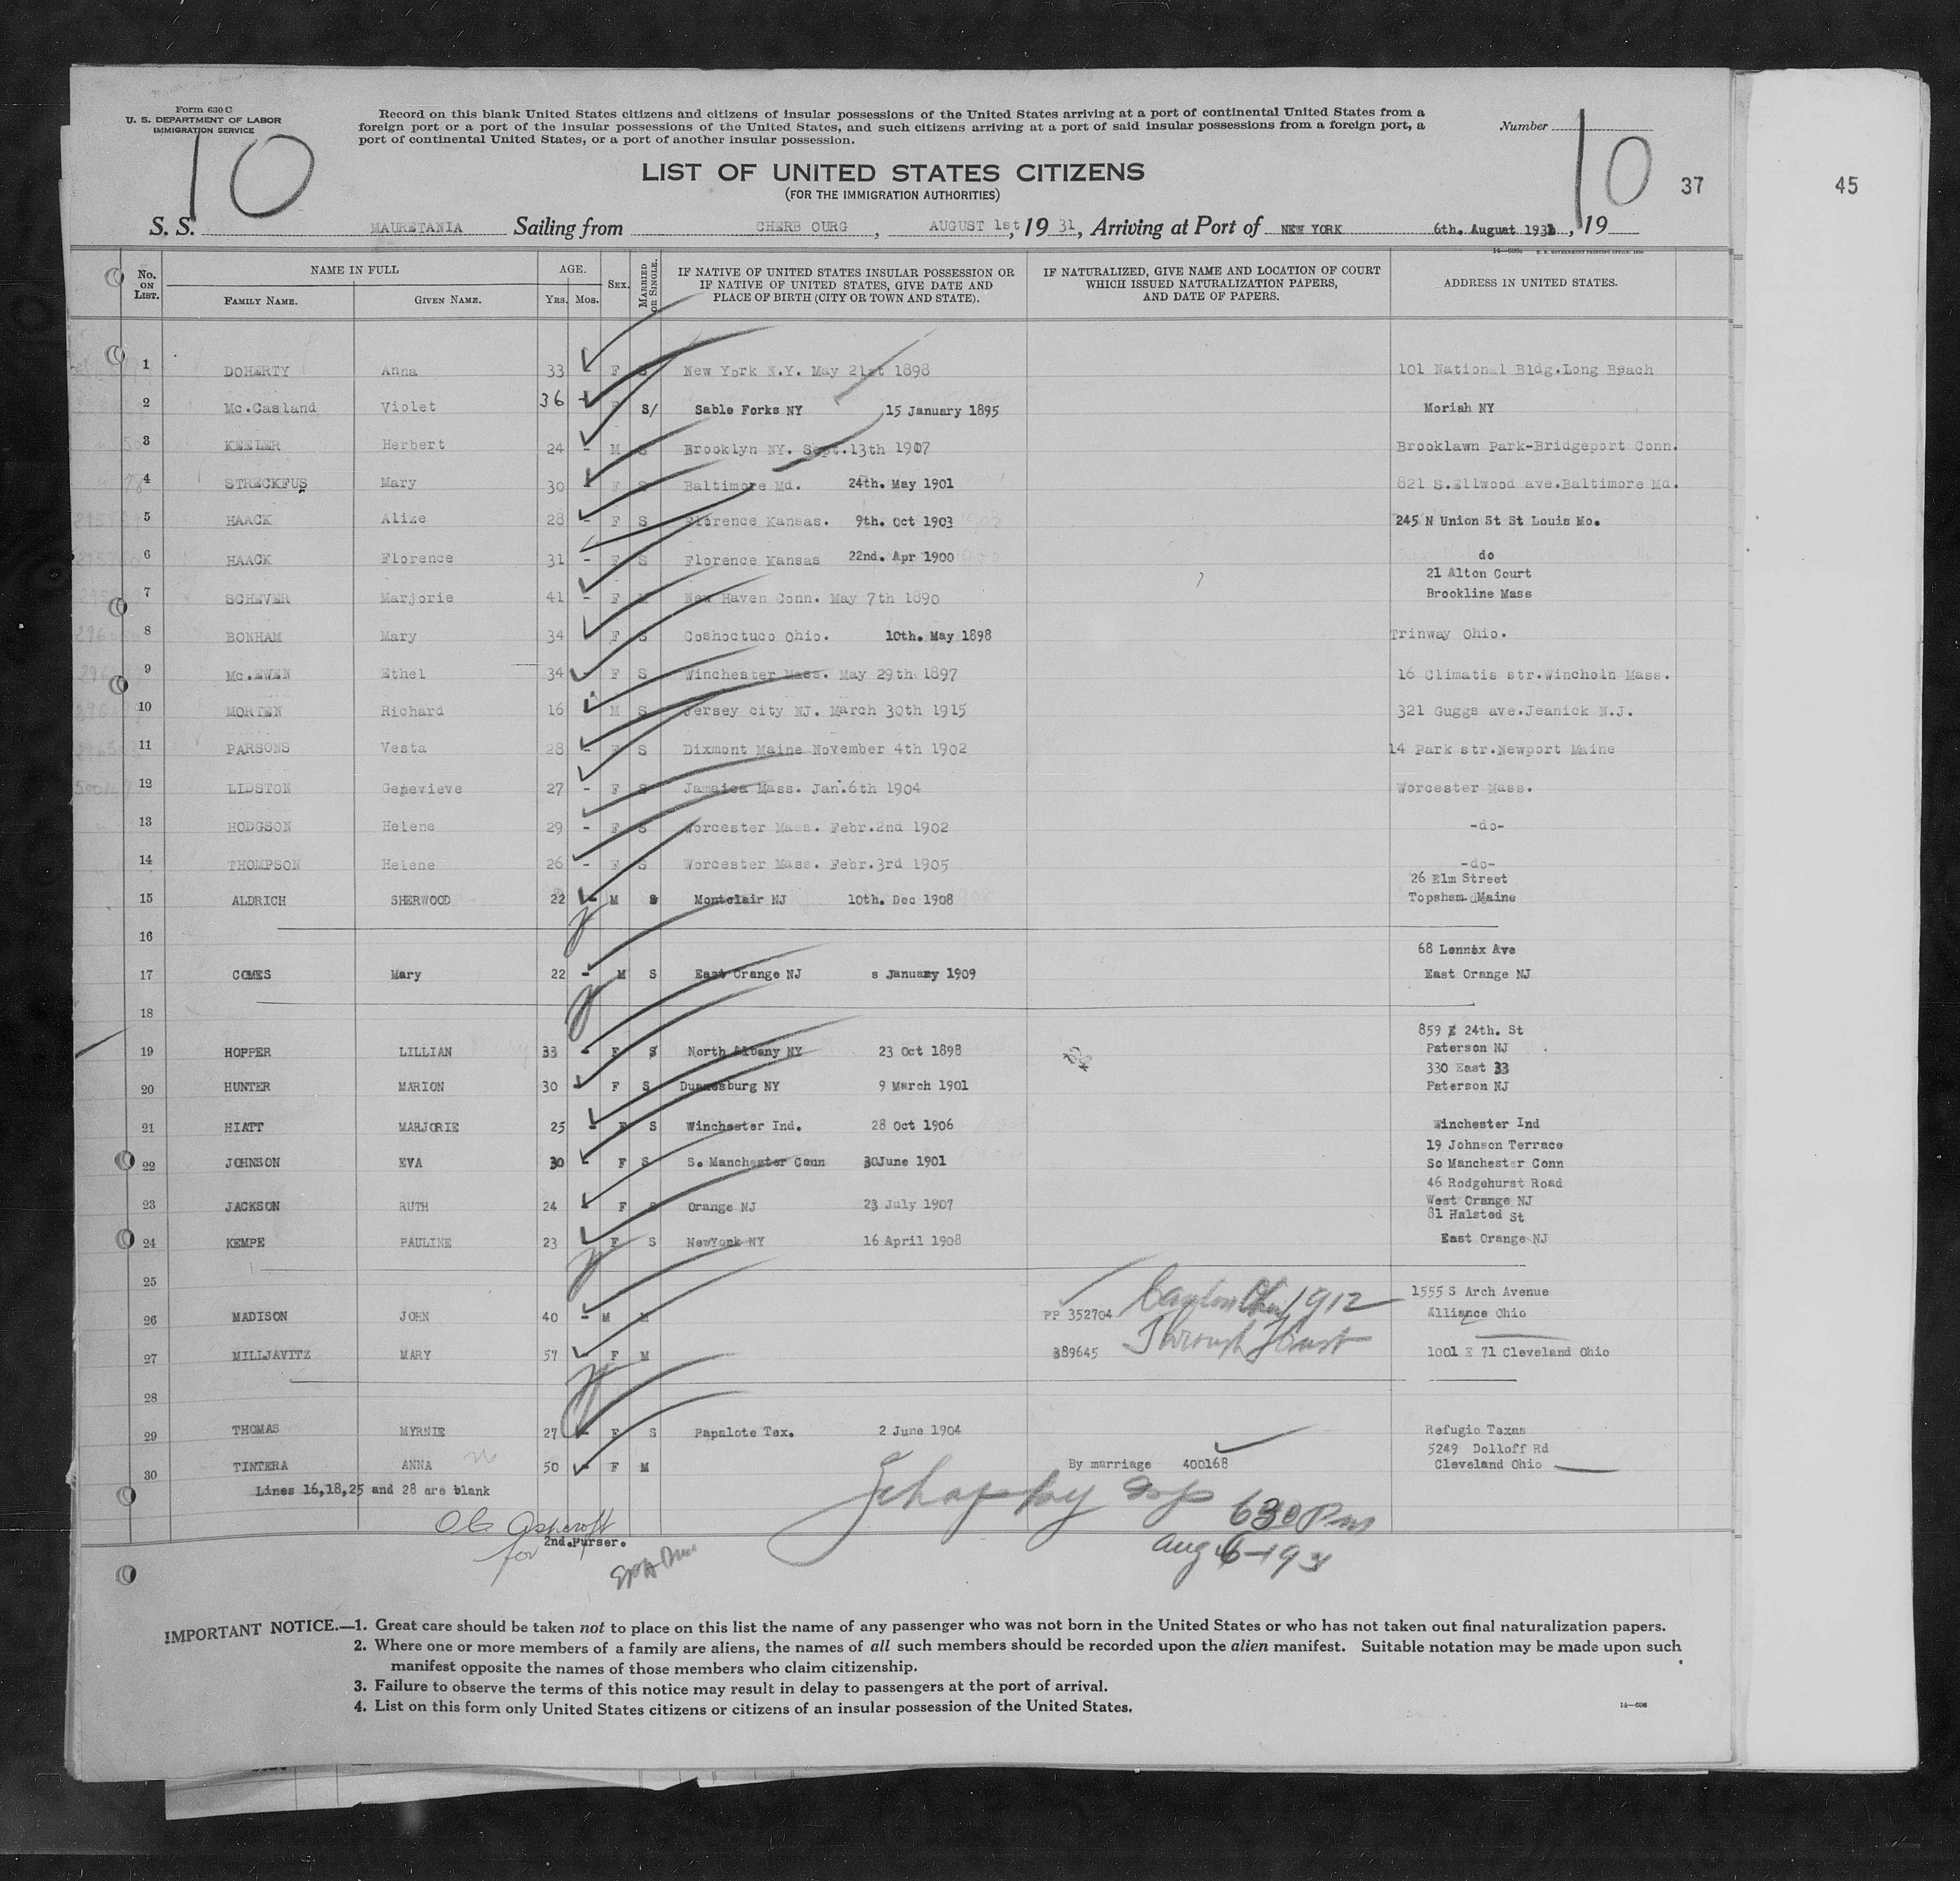 Form 630 C
U. S. DEPARTMENT OF LABOR
IMMIGRATION SERVICE
Record on this blank United States citizens and citizens of insular possessions of the United States arriving at a port of continental United States from a
foreign port or a port of the insular possessions of the United States, and such citizens arriving at a port of said insular possessions from a foreign port, a
port of continental United States, or a port of another insular possession.
Number
10
10
37
45
LIST OF UNITED STATES CITIZENS
(FOR THE IMMIGRATION AUTHORITIES)
S. S. MAURETANIA Sailing from CHERBOURG, AUGUST 1st, 19 31, Arriving at Port of NEW YORK 6th. August 1931, 19
No. ON LIST. NAME IN FULL AGE. SEX. MARRIED OR SINGLE. IF NATIVE OF UNITED STATES INSULAR POSSESSION OR IF NATIVE OF UNITED STATES, GIVE DATE AND PLACE OF BIRTH (CITY OR TOWN AND STATE). IF NATURALIZED, GIVE NAME AND LOCATION OF COURT WHICH ISSUED NATURALIZATION PAPERS, AND DATE OF PAPERS. ADDRESS IN UNITED STATES.
FAMILY NAME. GIVEN NAME. YRS. MOS.
1 DOHERTY Anna 33 F S New York N.Y. May 21st 1898 101 National Bldg.Long Beach
2 Mc.Casland Violet 36 - F S/ Sable Forks NY 15 January 1895 Moriah NY
3 KEELER Herbert 24 - M S Brooklyn NY. Sept.13th 1907 Brooklawn Park-Bridgeport Conn.
4 STRECKFUS Mary 30 - F S Baltimore Md. 24th. May 1901 821 S.Ellwood ave.Baltimore Md.
5 HAACK Alize 28 - F S Florence Kansas. 9th. Oct 1903 245 N Union St St Louis Mo.
6 HAACK Florence 31 - F S Florence Kansas 22nd. Apr 1900 do
21 Alton Court
7 SCHEVER Marjorie 41 - F M New Haven Conn. May 7th 1890 Brookline Mass
8 BONHAM Mary 34 F S Coshoctuco Ohio. 10th. May 1898 Trinway Ohio.
9 Mc.EWEN Ethel 34 - F S Winchester Mass. May 29th 1897 16 Climatis str.Wincholn Mass.
10 MORTEN Richard 16 M S Jersey city NJ. March 30th 1915 321 Guggs ave.Jeanick N.J.
11 PARSONS Vesta 28 - F S Dixmont Maine November 4th 1902 14 Park str.Newport Maine
12 LIDSTON Genevieve 27 - F S Jamaica Mass. Jan.6th 1904 Worcester Mass.
13 HODGSON Helene 29 - F S Worcester Mass. Febr.2nd 1902 -do-
14 THOMPSON Helene 26 - F S Worcester Mass. Febr.3rd 1905 -do-
26 Elm Street
15 ALDRICH SHERWOOD 22 - M S Montclair NJ 10th. Dec 1908 Topsham Maine
16
68 Lennox Ave
17 COMES Mary 22 - M S East Orange NJ 8 January 1909 East Orange NJ
18
859 E 24th. St
19 HOPPER LILLIAN 33 - F S North Albany NY 23 Oct 1898 Paterson NJ
330 East 33
20 HUNTER MARION 30 - F S Duanesburg NY 9 March 1901 Paterson NJ
21 HIATT MARJORIE 25 - F S Winchester Ind. 28 Oct 1906 Winchester Ind
19 Johnson Terrace
22 JOHNSON EVA 30 - F S S. Manchester Conn 30June 1901 So Manchester Conn
46 Rodgehurst Road
23 JACKSON RUTH 24 - F S Orange NJ 23 July 1907 West Orange NJ
81 Halsted St
24 KEMPE PAULINE 23 F S NewYork NY 16 April 1908 East Orange NJ
25
1555 S Arch Avenue
26 MADISON JOHN 40 - M M PP 352704 Canton Ohio 1912 Alliance Ohio
Through Husb
27 MILLJAVITZ MARY 57 - F M 389645 1001 E 71 Cleveland Ohio
28
29 THOMAS MYRNIE 27 - F S Papalote Tex. 2 June 1904 Refugio Texas
5249 Dolloff Rd
30 TINTERA ANNA 50 - F M By marriage 400168 Cleveland Ohio
Lines 16,18,25 and 28 are blank
Ashcroft
for 2nd.Purser.
630 Pm
Aug 6-1931
IMPORTANT NOTICE.—1. Great care should be taken not to place on this list the name of any passenger who was not born in the United States or who has not taken out final naturalization papers.
2. Where one or more members of a family are aliens, the names of all such members should be recorded upon the alien manifest. Suitable notation may be made upon such
manifest opposite the names of those members who claim citizenship.
3. Failure to observe the terms of this notice may result in delay to passengers at the port of arrival.
4. List on this form only United States citizens or citizens of an insular possession of the United States.